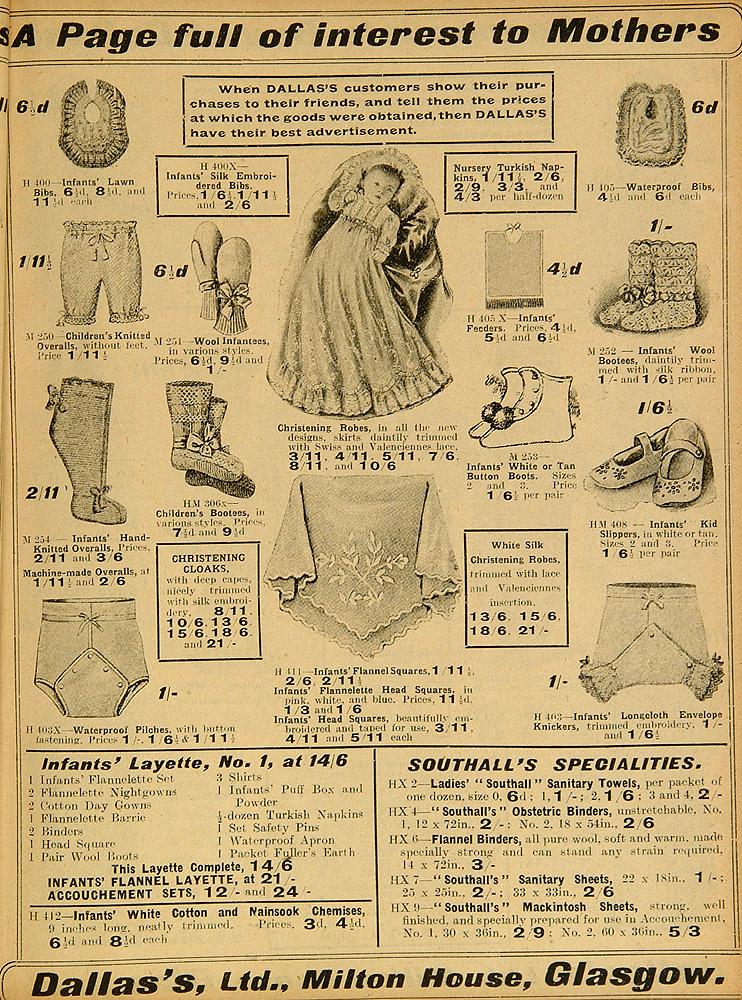 A Page full of interest to Mothers
When DALLAS'S customers show their pur-
chases to their friends, and tell them the prices
at which the goods were obtained, then DALLAS'S
have their best advertisement.
6½d
H 400—Infants' Lawn
Bibs, 6½d, 8½d, and
11½d each
H 400X—
Infants' Silk Embroi-
dered Bibs.
Prices, 1/6½, 1/11½
and 2/6
Nursery Turkish Nap-
kins, 1/11½, 2/6,
2/9, 3/3, and
4/3 per half-dozen
6d
H 405—Waterproof Bibs,
4½d and 6d each
1/11½
M 250—Children's Knitted
Overalls, without feet.
Price 1/11½
6½d
M 251—Wool Infantees,
in various styles.
Prices, 6½d, 9½d and
1/-
4½d
H 405X—Infants'
Feeders. Prices, 4½d,
5½d and 6½d
1/-
M 252 — Infants' Wool
Bootees, daintily trim-
med with silk ribbon,
1/- and 1/6½ per pair
Christening Robes, in all the new
designs, skirts daintily trimmed
with Swiss and Valenciennes lace,
3/11, 4/11, 5/11, 7/6,
8/11, and 10/6
2/11
M 254 — Infants' Hand-
Knitted Overalls, Prices,
2/11 and 3/6
Machine-made Overalls, at
1/11½ and 2/6
HM 306x—
Children's Bootees, in
various styles. Prices,
7½d and 9½d
M 253—
Infants' White or Tan
Button Boots. Sizes
2 and 3. Price
1/6½ per pair
1/6½
HM 408 — Infants' Kid
Slippers, in white or tan.
Sizes 2 and 3. Price
1/6½ per pair
CHRISTENING
CLOAKS,
with deep capes,
nicely trimmed
with silk embroi-
dery. 8/11,
10/6, 13/6,
15/6, 18/6,
and 21/-
White Silk
Christening Robes,
trimmed with lace
and Valenciennes
insertion,
13/6, 15/6,
18/6, 21/-
1/-
H 403X—Waterproof Pilches, with button
fastening. Prices 1/-, 1/6½ & 1/11½
H 411—Infants' Flannel Squares, 1/11½,
2/6, 2/11½
Infants' Flannelette Head Squares, in
pink, white, and blue. Prices, 11½d,
1/3 and 1/6
Infants' Head Squares, beautifully em-
broidered and taped for use, 3/11,
4/11 and 5/11 each
1/-
H 403—Infants' Longcloth Envelope
Knickers, trimmed embroidery, 1/-
and 1/6½
Infants' Layette, No. 1, at 14/6
1 Infants' Flannelette Set
2 Flannelette Nightgowns
2 Cotton Day Gowns
1 Flannelette Barrie
2 Binders
1 Head Square
1 Pair Wool Boots
3 Shirts
1 Infants' Puff Box and
Powder
½-dozen Turkish Napkins
1 Set Safety Pins
1 Waterproof Apron
1 Packet Fuller's Earth
This Layette Complete, 14/6
INFANTS' FLANNEL LAYETTE, at 21/-
ACCOUCHEMENT SETS, 12/- and 24/-
H 412—Infants' White Cotton and Nainsook Chemises,
9 inches long, neatly trimmed. Prices, 3d, 4½d,
6½d and 8½d each
SOUTHALL'S SPECIALITIES.
HX 2—Ladies' "Southall" Sanitary Towels, per packet of
one dozen, size 0, 6d; 1, 1/-; 2, 1/6; 3 and 4, 2/-
HX 4—"Southall's" Obstetric Binders, unstretchable, No.
1, 12 x 72in., 2/-; No. 2, 18 x 54in., 2/6
HX 6—Flannel Binders, all pure wool, soft and warm, made
specially strong and can stand any strain required,
14 x 72in., 3/-
HX 7—"Southall's" Sanitary Sheets, 22 x 18in., 1/-;
25 x 25in., 2/-; 33 x 33in., 2/6
HX 9—"Southall's" Mackintosh Sheets, strong, well
finished, and specially prepared for use in Accouchement,
No. 1, 30 x 36in., 2/9; No. 2, 60 x 36in., 5/3
Dallas's, Ltd., Milton House, Glasgow.